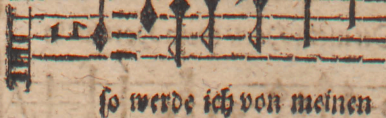 so werde ich von meinen